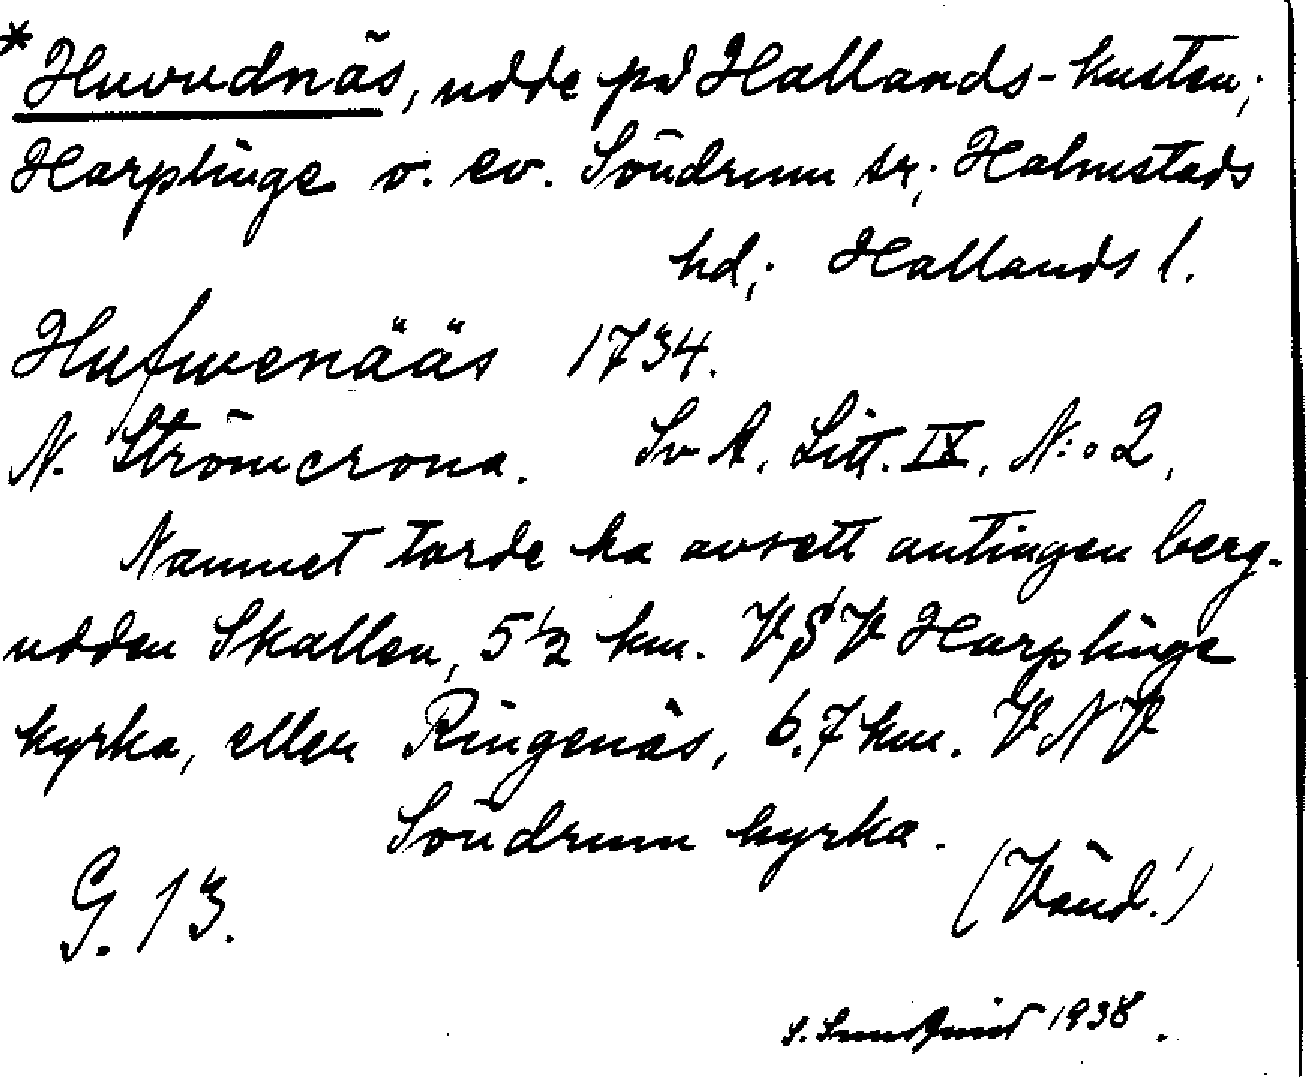 * Huvudnäs, udde på Hallands-kusten;
Harplinge o. ev. Söndrum sr; Halmstads
hd; Hallands l.
Hufwenääs 1734.
N. Strömcrona. Sv. A. Litt. IX, N:o 2,
Namnet torde ha avsett antingen berg-
udden Skallen, 5 1/2 km. VSV Harplinge
kyrka, eller Ringenäs, 6.7 km. VNV
Söndrum kyrka.
G. 13.
(Vänd!)
1938.